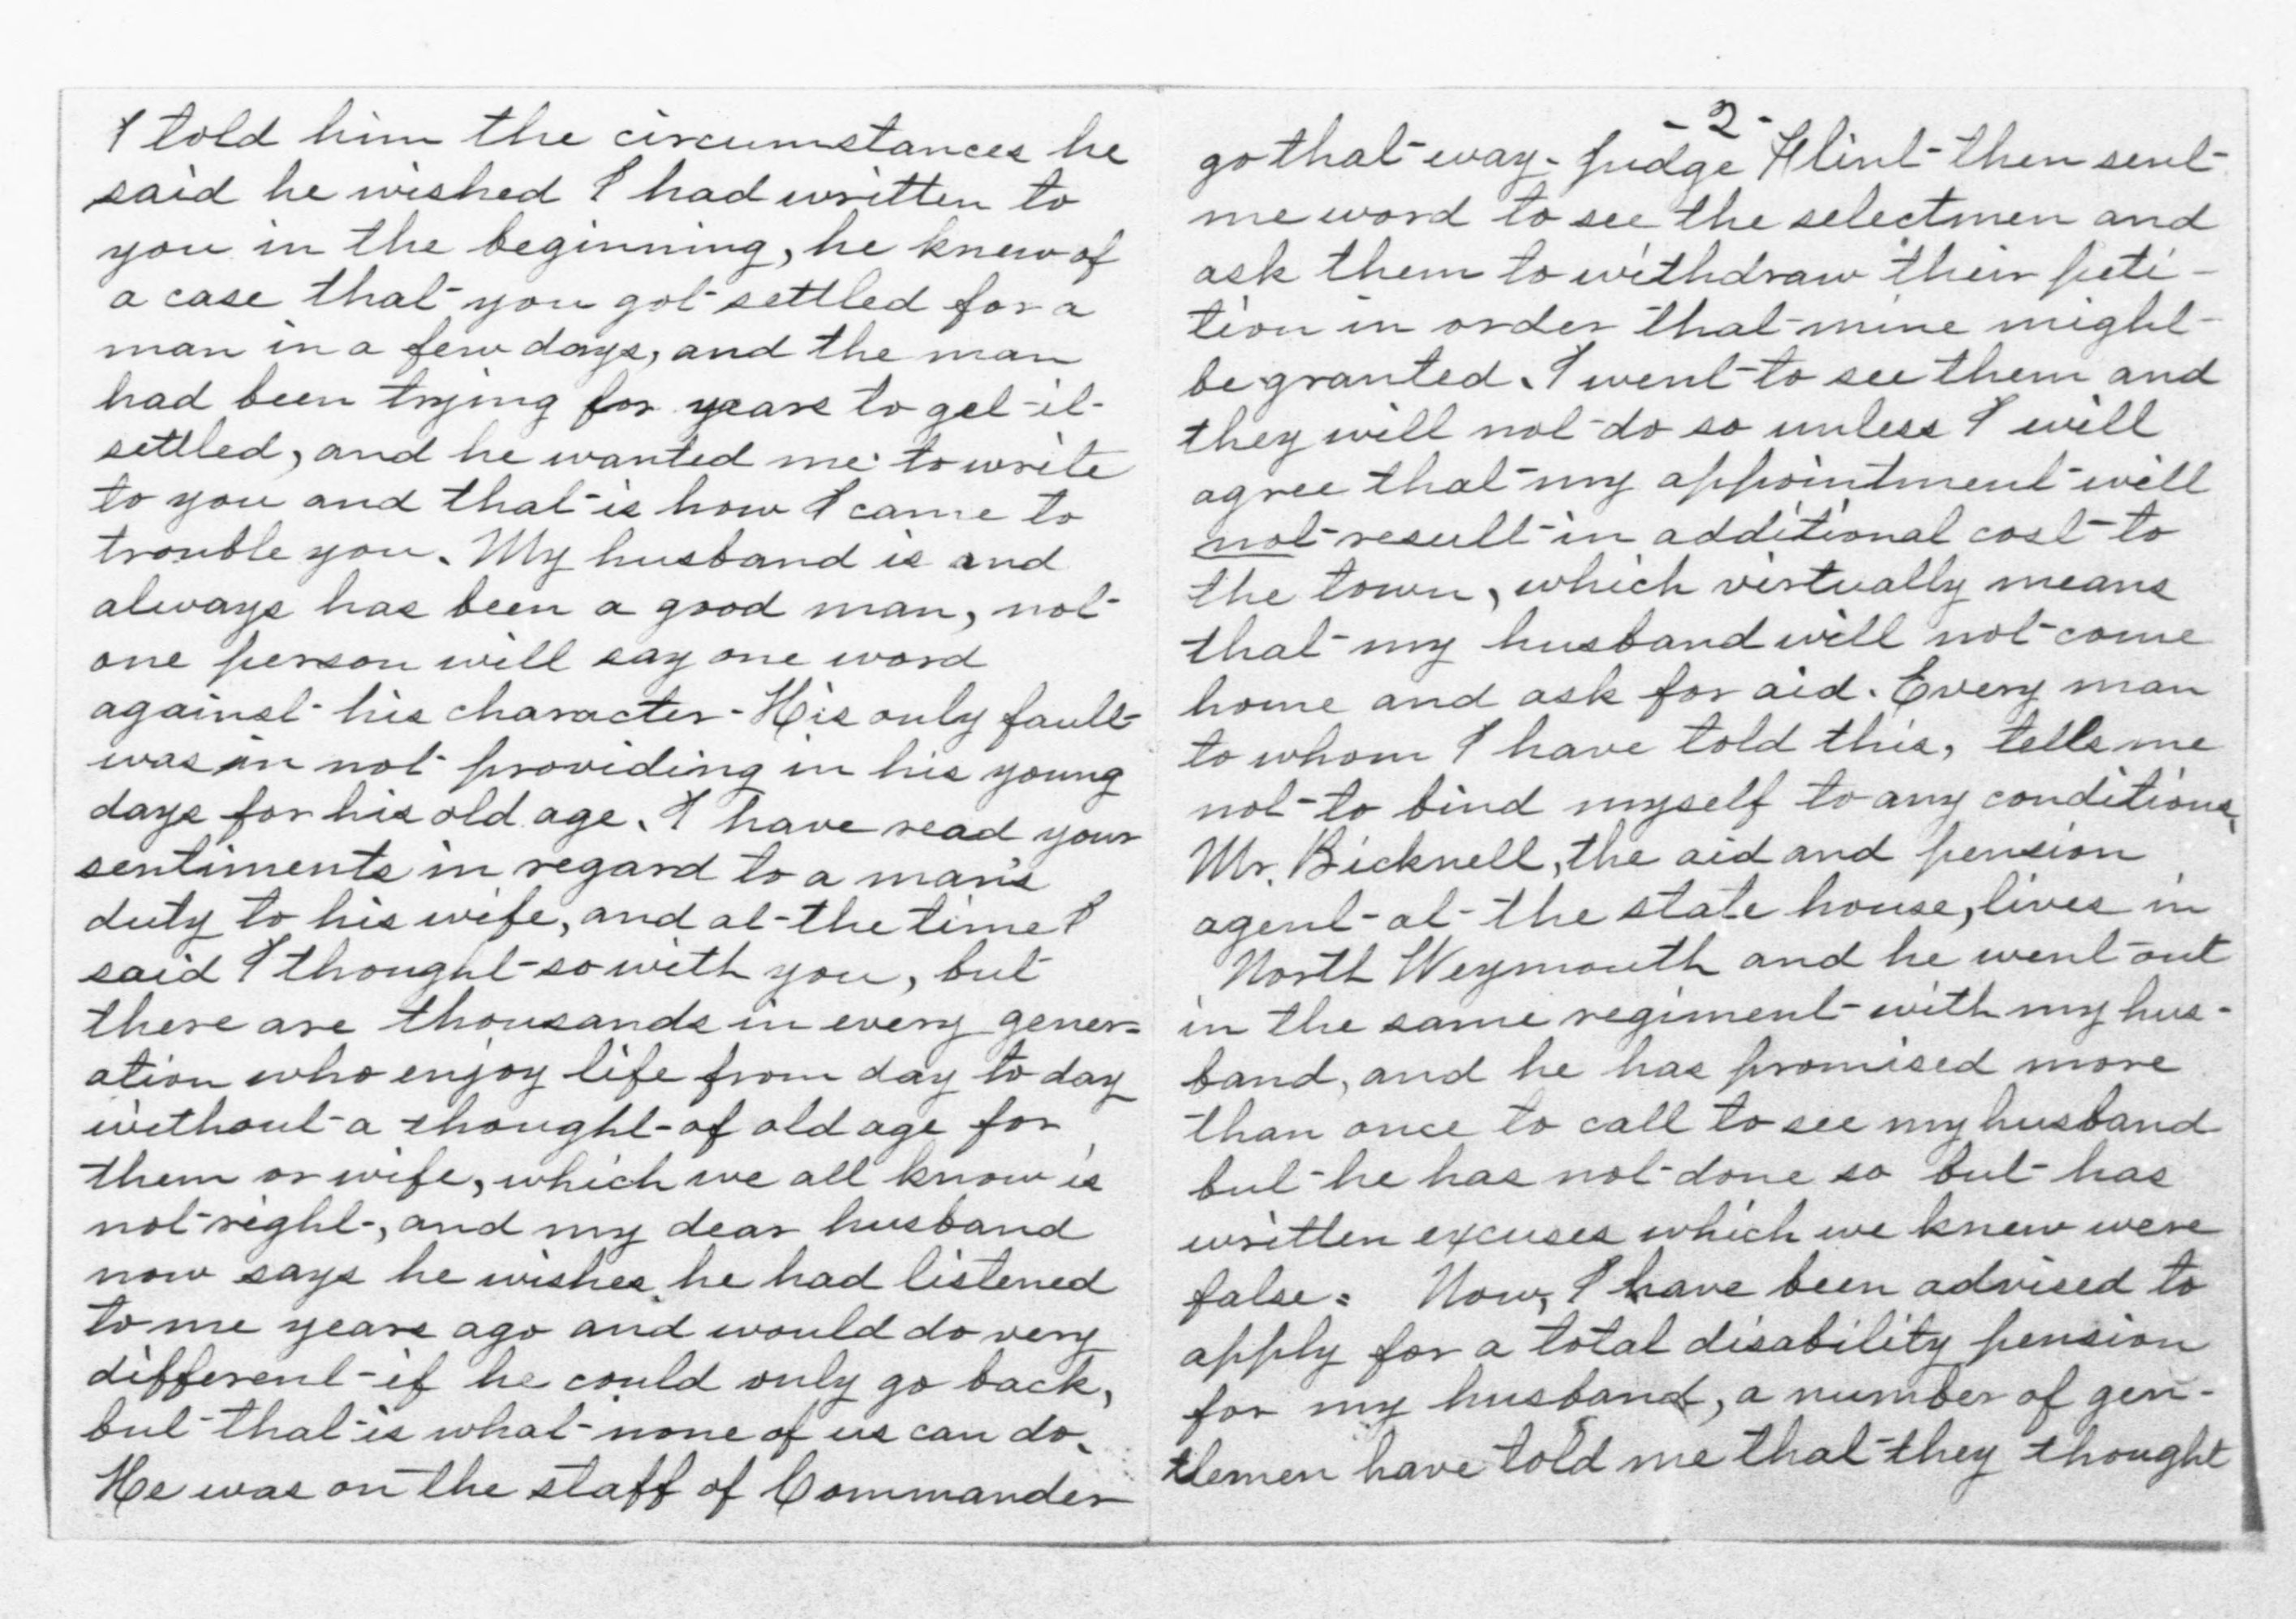 I told him the circumstances he
said he wished I had written to
you in the beginning, he knew of
a case that you got settled for a
man in a few days, and the man
had been trying for years to get it
settled, and he wanted me to write
to you and that is how I came to
trouble you. My husband is and
always has been a good man, not
one person will say one word
against his character - His only fault
was in not providing in his young
days for his old age. I have read your
sentiments in regard to a man's
duty to his wife, and at the time I
said I thought so with you, but
there are thousands in every gener-
ation who enjoy life from day to day
without a thought of old age for
them or wife, which we all know is
not right, and my dear husband
now says he wishes he had listened
to me years ago and would do very
different if he could only go back,
but that is what none of us can do.
He was on the staff of Commander
- 2 -
go that way. Judge Flint then sent
me word to see the selectmen and
ask them to withdraw their peti-
tion in order that mine might
be granted. I went to see them and
they will not do so unless I will
agree that my appointment will
not result in additional cost to
the town, which virtually means
that my husband will not come
home and ask for aid. Every man
to whom I have told this, tells me
not to bind myself to any conditions.
Mr. Bicknell, the aid and pension
agent at the state house, lives in
North Weymouth and he went out
in the same regiment with my hus-
band, and he has promised more
than once to call to see my husband
but he has not done so but has
written excuses which we knew were
false. Now, I have been advised to
apply for a total disability pension
for my husband, a number of gen-
tlemen have told me that they thought